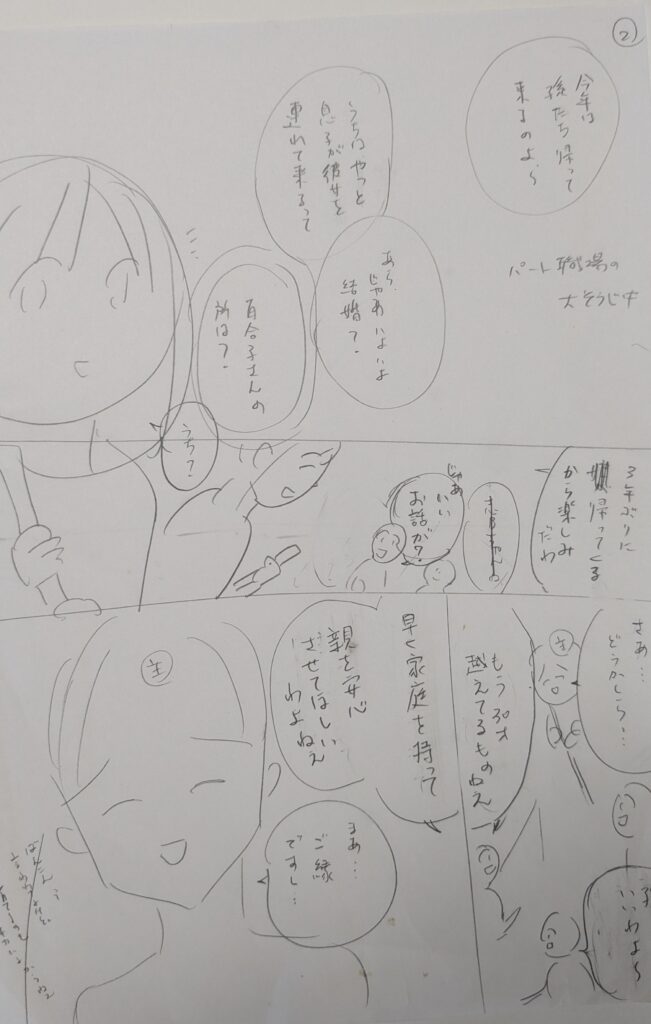 2
今年は
孫たち帰って
来るのよ〜
うちはやっと
息子が彼女を
連れて来るって
パート職場の
大そうじ中
あら、
じゃあいよいよ
結婚?
百合子さんの
所は?
うち?
3年ぶりに
帰ってくる
から楽しみ
だわ
じゃあ
いい
お話が?
さあ…
どうかしら…
主
いいわよ〜
もう30才
越えてるものねえ
早く家庭を持って
親を安心
させてほしい
わよねえ
主
まあ…
ご縁
ですし…